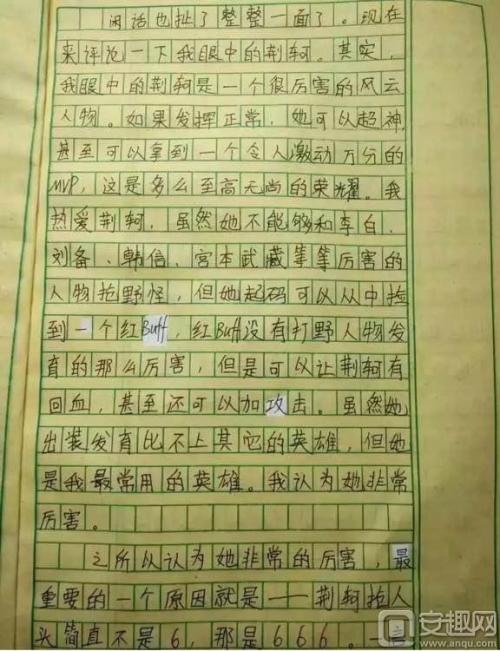 闲话也扯了整整一面了。现在
来评论一下我眼中的荆轲。其实,
我眼中的荆轲是一个很厉害的风云
人物。如果发挥正常,她可以超神,
甚至可以拿到一个令人激动万分的
MVP,这是多么至高无尚的荣耀。我
热爱荆轲,虽然她不能够和李白、
刘备、韩信、宫本武藏等等厉害的
人物抢野怪,但她起码可以从中捡
到一个红Buff,红Buff没有打野人物发
育的那么厉害,但是可以让荆轲有
回血,甚至还可以加攻击。虽然她
出装发育比不上其它的英雄,但她
是我最常用的英雄。我认为她非常
厉害。
之所以认为她非常的厉害,最
重要的一个原因就是——荆轲抢人
头简直不是6,那是666。一言
安趣网
www.anqu.com